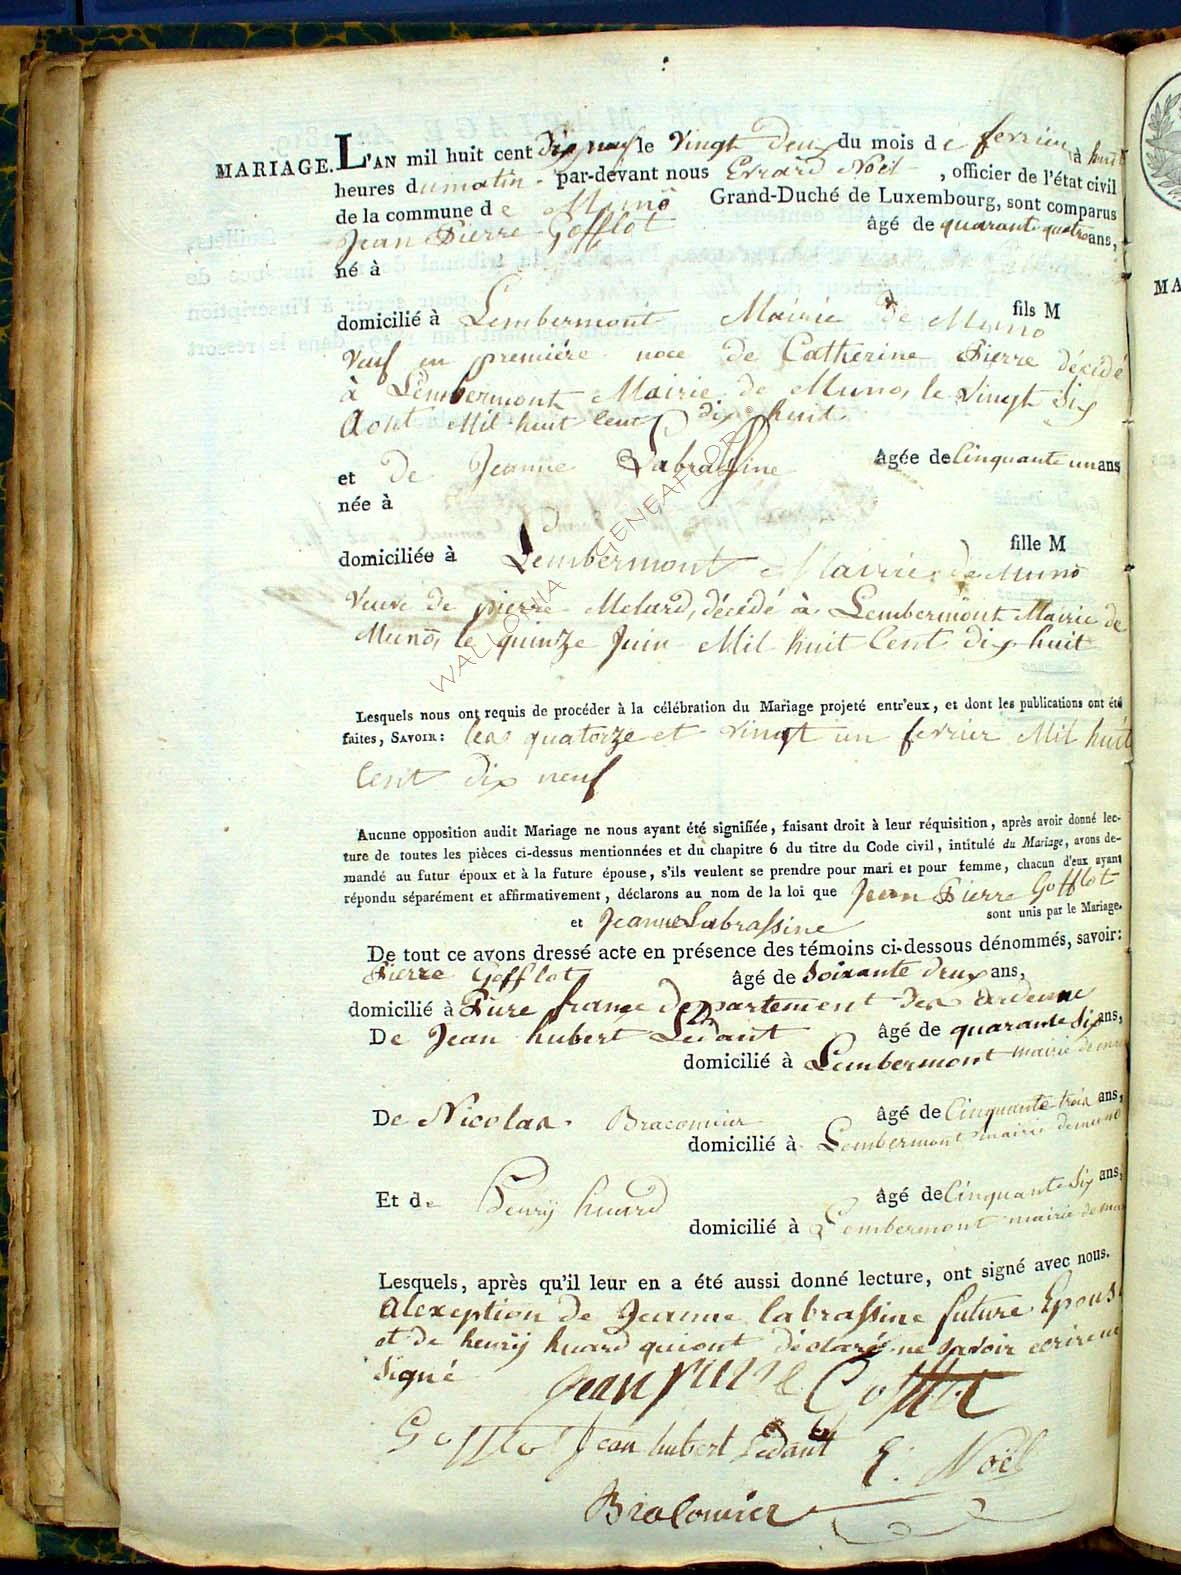 MARIAGE. L'AN mil huit cent dix neuf le vingt deux du mois de fevrier à huit
heures du matin par-devant nous Errard Noël , officier de l'état civil
de la commune de Muno Grand-Duché de Luxembourg, sont comparus
Jean Pierre Gofflot âgé de quarante quatre ans,
né à
domicilié à Lembermont Mairie de Muno fils M
veuf en premiére noce de Catherine Pierre décédé
à Lembermont Mairie de Muno, le vingt six
Aout Mil huit Cent dix huit
et De Jeanne Labrassine âgée de Cinquante un ans
née à
domiciliée à Lembermont Mairie de Muno fille M
veuve de pierre Melard, décédé à Lembermont Mairie de
Muno, le quinze Juin Mil huit Cent dix huit
Lesquels nous ont requis de procéder à la célébration du Mariage projeté entr'eux, et dont les publications ont été
faites, SAVOIR: les quatorze et vingt un fevrier Mil huit
Cent dix neuf
Aucune opposition audit Mariage ne nous ayant été signifiée, faisant droit à leur réquisition, après avoir donné lec-
ture de toutes les pièces ci-dessus mentionnées et du chapitre 6 du titre du Code civil, intitulé du Mariage, avons de-
mandé au futur époux et à la future épouse, s'ils veulent se prendre pour mari et pour femme, chacun d'eux ayant
répondu séparément et affirmativement, déclarons au nom de la loi que Jean Pierre Gofflot
et Jeanne Labrassine sont unis par le Mariage.
De tout ce avons dressé acte en présence des témoins ci-dessous dénommés, savoir:
Pierre Gofflot âgé de Soixante deux ans,
domicilié à Pure france departement des ardenne
De Jean hubert Ledant âgé de quarante six ans,
domicilié à Lembermont mairie de muno
De Nicolas Braconnier âgé de Cinquante trois ans,
domicilié à Lembermont mairie de muno
Et de henrÿ huard âgé de Cinquante six ans,
domicilié à Lembermont mairie de muno
Lesquels, après qu'il leur en a été aussi donné lecture, ont signé avec nous.
Alexeption de Jeanne labrassine future Epouse
et de henrÿ huard qui ont déclaré ne savoir ecrire ni
signé
Jean pierre Gofflot
Gofflot Jean hubert Lédant E. Noël
Braconnier
WALLONIA GENEAFLOR